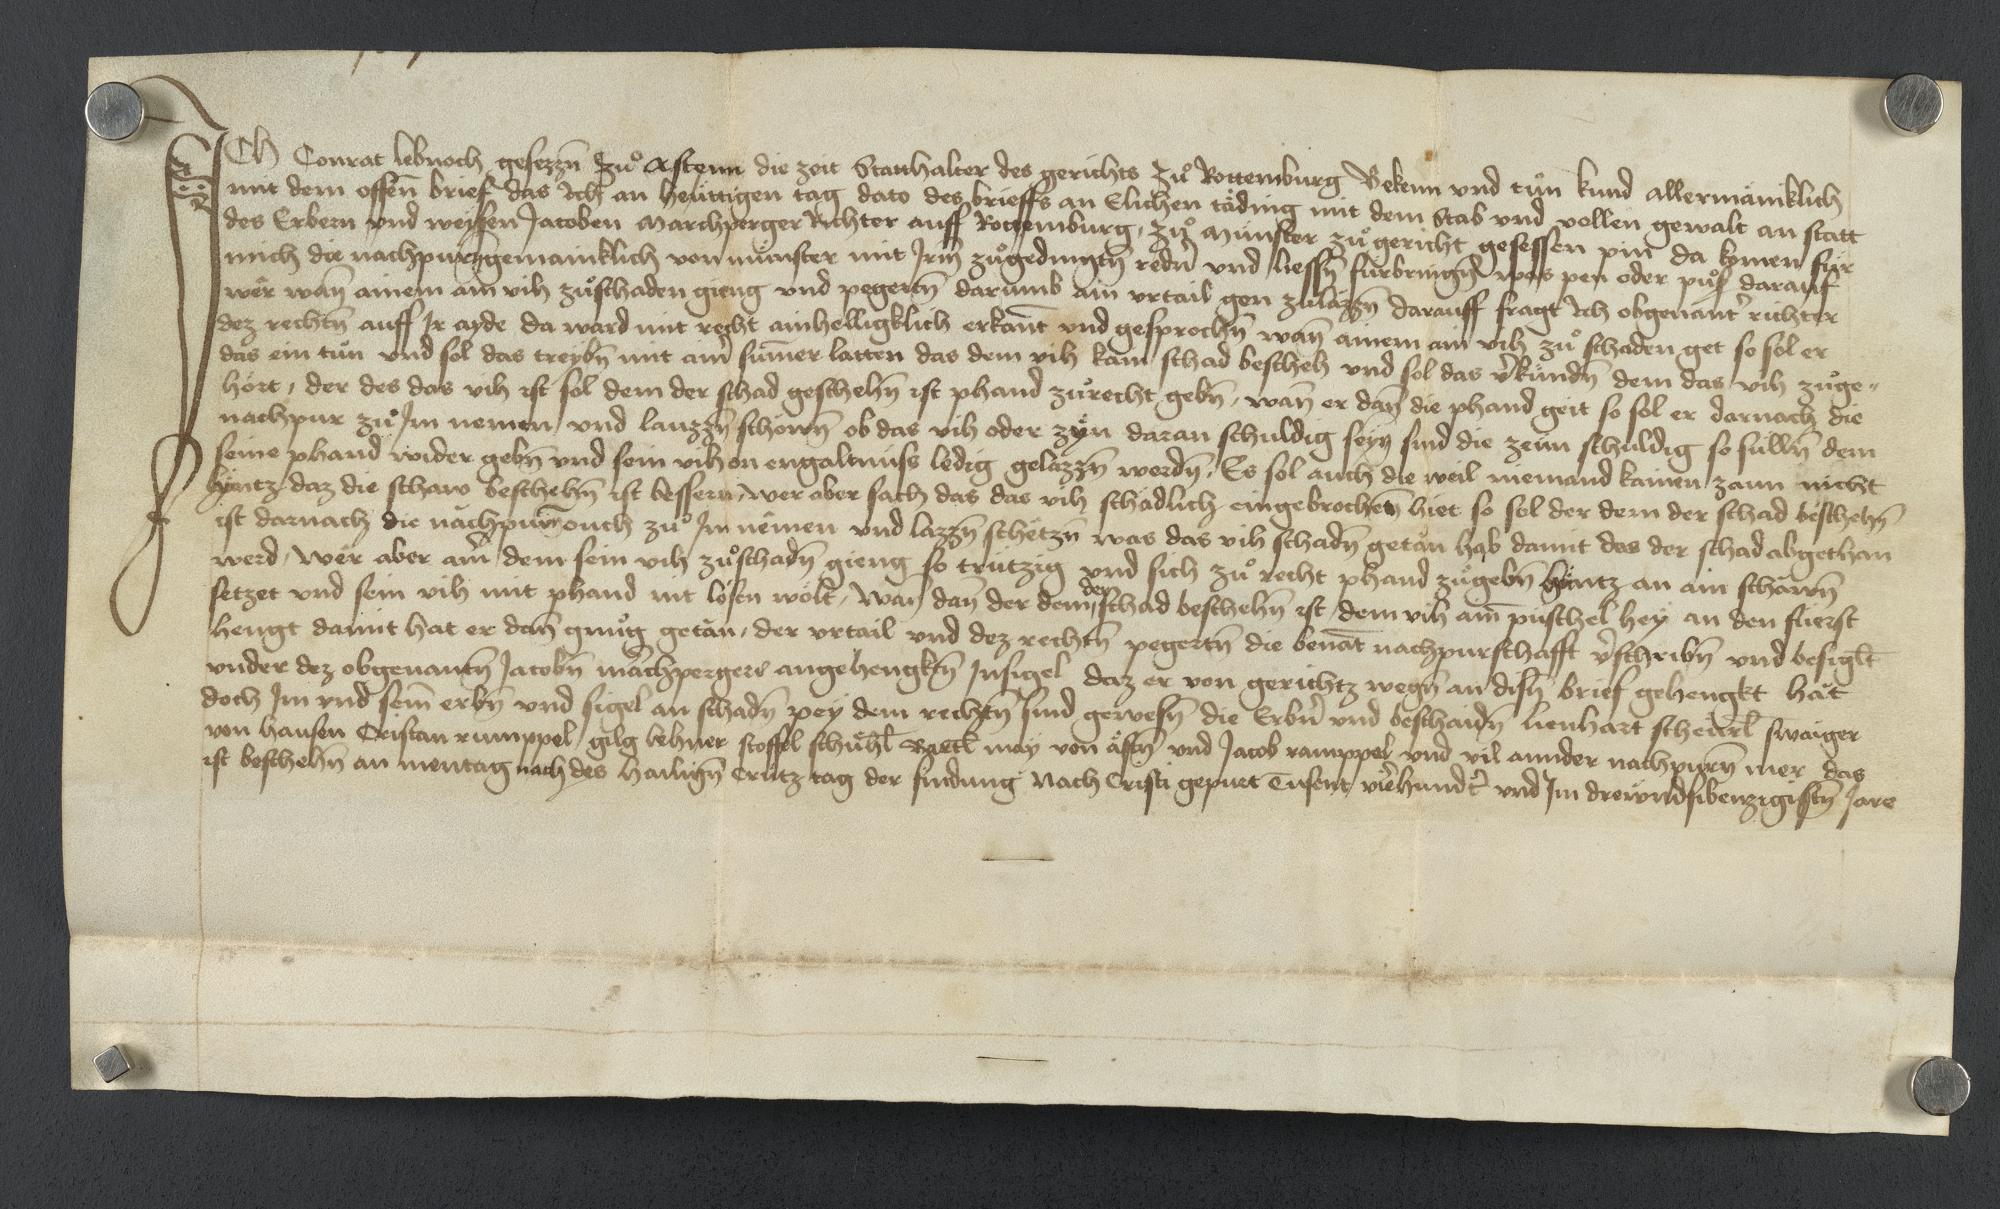 Ich Conrat lebnoch gesezzn̄ Zuͦ Astenn die zeit Statthalter des gerichts Zuͦ Rottemburg Bekenn vnd tuͦn kund allermäinklich
mit dem offen̄ brief das Ich an heüttigen tag dato des brieffs an Elichen täding mit dem Stab vnd vollen gewalt an statt
des Erbern vnd weysen Jacoben Marchperger Richter auff Rottemburg, Zuͦ Münster zuͦ gericht gesessen pin da komen für
mich die nachpurn̄ gemainklich von münster mit Irm̄ zuͦgedingtn̄ redn̄ vnd liessn̄ fürbringn̄ was pen oder puͦs darauf
wër wan̄ ainem ain vih zuͦschaden gieng vnd pegertn̄ darumb ain vrtail gen zulazzn̄ darauff fragt Ich obgenant̓ richter
dez rechtn̄ auff Ir ayde da ward mit recht ainhelligklich erkan̄t vnd gesprochn̄ wan̄ ainem ain vih zuͦ schaden get so sol er
das ein tuͦn vnd sol das treybn̄ mit aim̄ sum̄er latten das dem vih kain schad bescheh vnd sol das v̓kündn̄ dem das vih zuͦge-
hört, der des das vih ist sol dem der schad geschehn̄ ist phand zuͦrecht gebn̄, wan̄ er dan̄ die phand geit so sol er darnach die
nachpur zuͦ Im nemen vnd lauzzn̄ schöwn̄ ob das vih oder zyn daran schuldig seyn sind die zeün schuldig so sülln̄ dem
seine phand wider gebn̄ vnd sein vih on engaltnüss ledig gelazzn̄ werdn̄, Es sol auch die weil niemand kainen zaun nicht
hyntz daz die schaw beschehn̄ ist bessern, wer aber sach das das vih schädlich eingebrochen̄ hiet so sol der dem der schad beschehn̄
ist darnach die nächpurn̄ ouch zuͦ Im nemen vnd lazzn̄ schetzn̄ was das vih schadn̄ getan hab damit das der schad abgethan
werd, Wër aber ain̄ dem sein vih zuͦschadn̄ gieng so trützig vnd sich zuͦ recht phand zuͦgebn̄ hyntz an ain schäwn̄
setzet vnd sein vih mit phand nit lösen wölt, Wan dan̄ der dem der schad beschehn̄ ist dem vih ain̄ püschel hey an den flierst
hengt damit hat er dan̄ gnuͦg getän, der vrtail vnd dez rechtn̄ pegertn̄ die benāt nachpurschafft v̓schribn̄ vnd besiglt̄
vnder dez obgenantn̄ Jacobn̄ märchpergers angehengktn̄ Insigel daz er von gerichtz wegn̄ an disn̄ brief gehengkt hät
doch Im vnd seim̄ erbn̄ vnd sigel an schadn̄ pey dem rechtn̄ sind gewesn̄ die Erbn̄ vnd beschaidn̄ lienhart scheürl swaiger
von hausen Cristan rumppel, gilg lehner stoffel schüchl̄ Bartl̄ may von ästn̄ vnd Jacob ramppel vnd vil annder nachpurn̄ mer das
ist beschehn̄ an mentag nach des hailign̄ Crütz tag der findung Nach Cristi gepuet Tusent vir̓hundt̓ vnd Im dreiündsibenzigistn̄ Jare